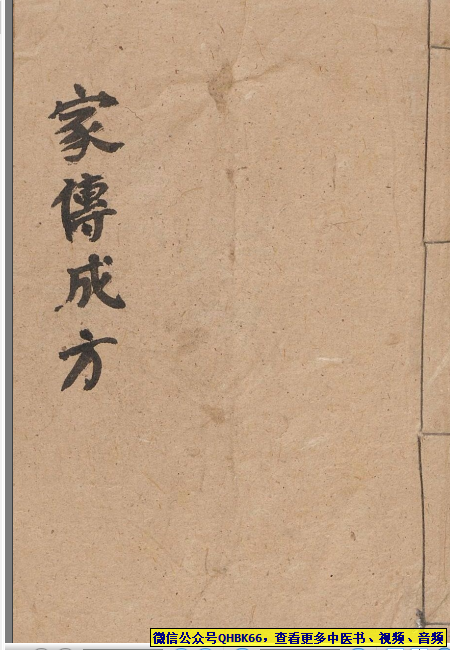 家傳成方
微信公众号QHBK66，查看更多中医书、视频、音频